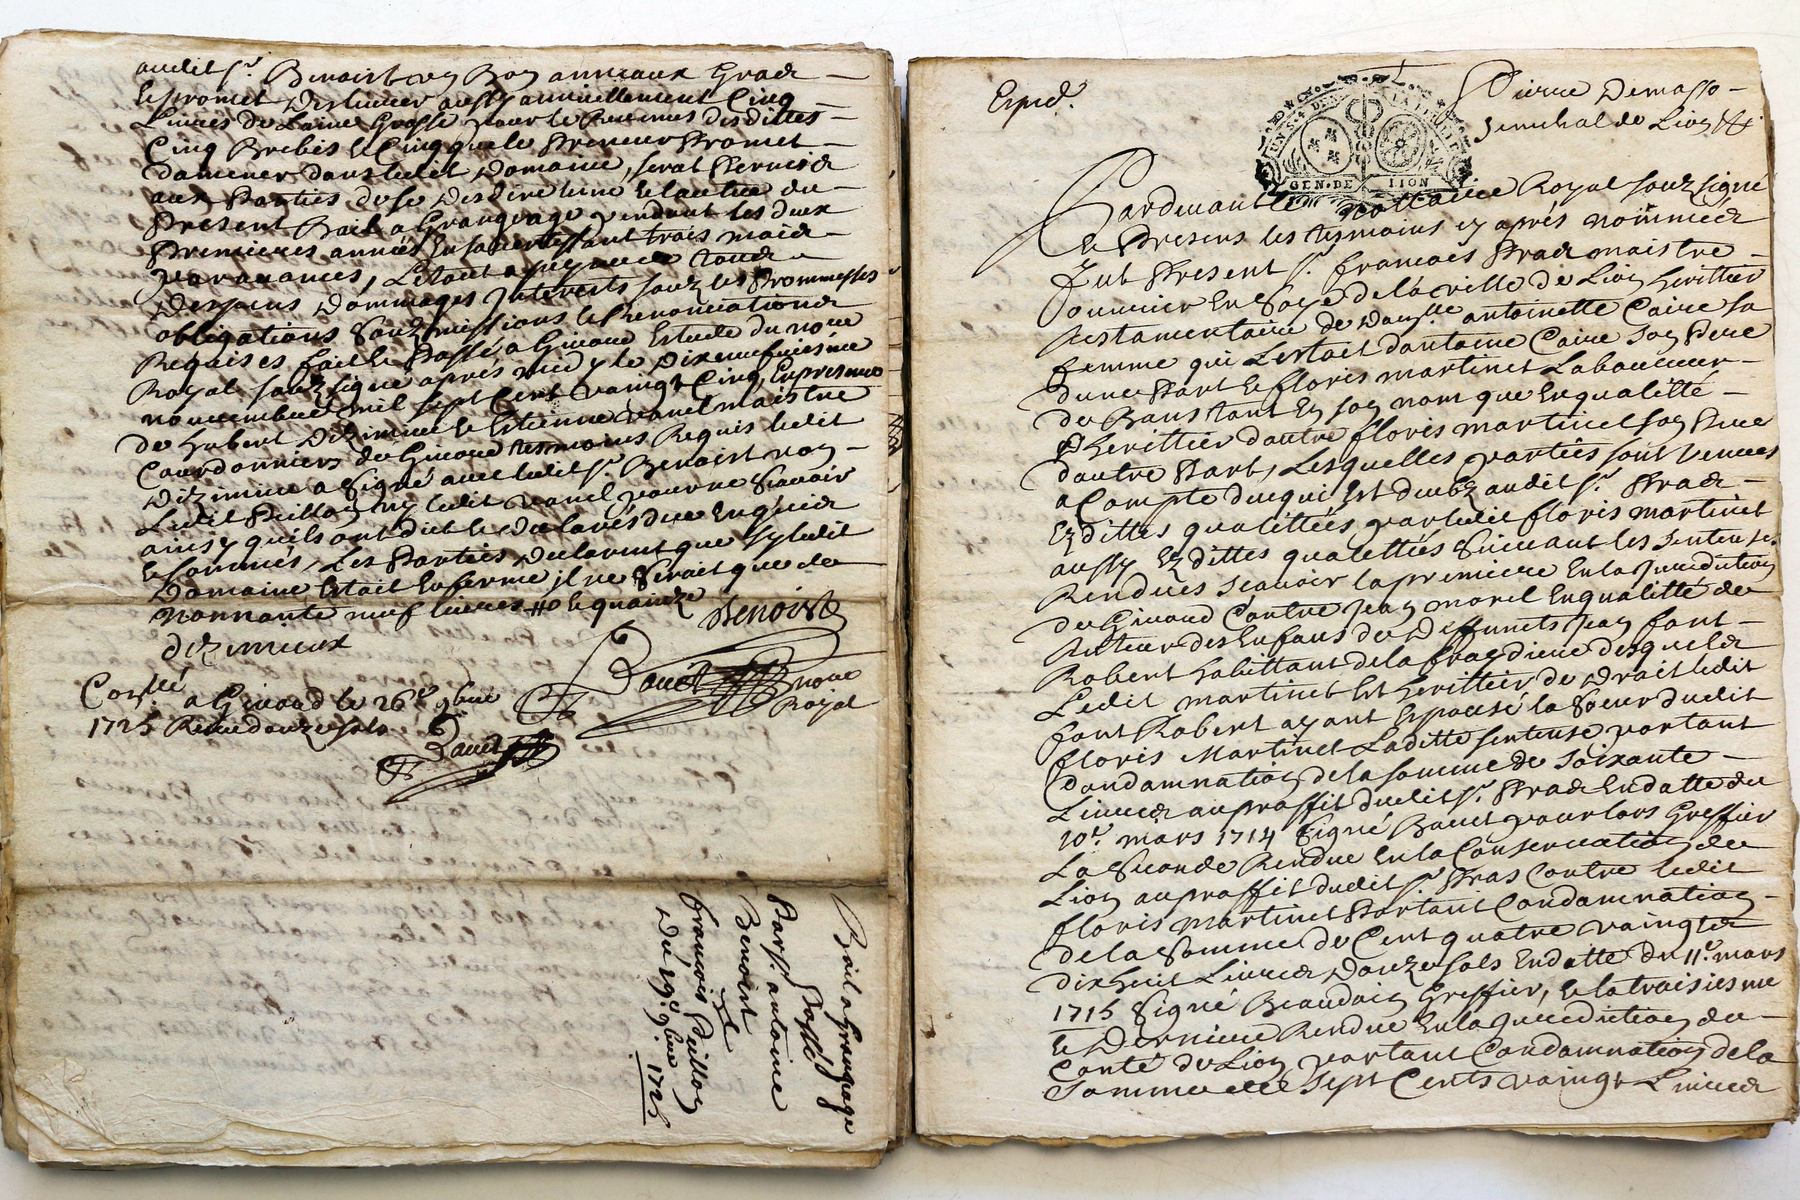 audit sr. Benoist
Et promet deslivrer aussy annuellement Cinq
Livres de Laine Grosse pour le Revenus desdittes
Cinq Brebis et Cinq que le Preneur Promet
damener dans ledit domaine, serat Permis
aux Parties de se desdire lune et lautre du
Present Bail a Grangeage pendant les deux
Premieres années En savertissant trois mois
paravances,
despens dommages Interests souz les Promesses
obligations soumissions et Renonciations
Requises fait et Passé a Givord Estude du no.re
Royal souzsigné après midy le dixneufviesme
novembre mil sept Cent vaingt Cinq, En presence
de hubert dizimieu et Estienne maistre
Courdonniers de Givord tesmoins Requis ledit
dizimieu a Signé avec ledit sr. Benoist non
Ledit Peillon ny ledit pour ne Scavoir
ainsy quils ont dit et declarés de ce Enquis
et sommés, Les Parties declarent que sy ledit
domaine Estait En ferme jl ne Serait que de
nonnante neuf livres Benoist
dizimieux
no.re
Royal
Con.llé a Givord le 26e 9bre
1725 Receu douze sols
Bail a Grangeage
Passé
Par sr. antoine
Benoist
a
francois Peillon
Du 19e 9bre 1725
Exped.
Pierre Demasso
Senechal de Lion
GEN · DE LION
Pardevant le nottaire Royal souzsigné
et Presens les tesmoins cy après nommés
fut Present sr. francois Pras maistre
ouvrier En Soye de la ville de Lion heritier
testamentaire de dam.lle antoinette Caire sa
femme qui Lestait dantoine Caire son Pere
dune Part et floris martinet Laboureur
de Bans tant En son nom que En qualitté
dherittier dautre floris martinet son Pere
dautre Part, Lesquelles parties sont venues
a Compte de ce qui Est deub audit sr. Pras
Ezdittes qualittées par ledit floris martinet
aussy Ezdittes qualittées Suivant les sentenses
Rendues scavoir la premiere En la jurediction
de Givord Contre jean morel En qualitté de
tuteur des Enfans de deffunts jean font
Robert habittant de la fraydiere desquels
Ledit martinet Est herittier de droit ledit
font Robert ayant Espousé la Soeur dudit
floris Martinet Laditte sentense portant
Condamnation de la somme de soixante
Livres au proffit dudit sr. Pras En datte du
10e. mars 1714 Signé pour lors Greffier
La Seconde Rendue En la Conservation de
Lion au proffit dudit sr. Pras Contre ledit
floris martinet Portant Condamnation
de la Somme de Cent quatre vaingts
dixhuit Livres douze sols En datte du 11e. mars
1715 Signé Beaudoin Greffier, et la troisiesme
et Derniere Rendue En la jurediction du
Conté de Lion portant Condamnation de la
Somme de sept Cents vaingt Livres